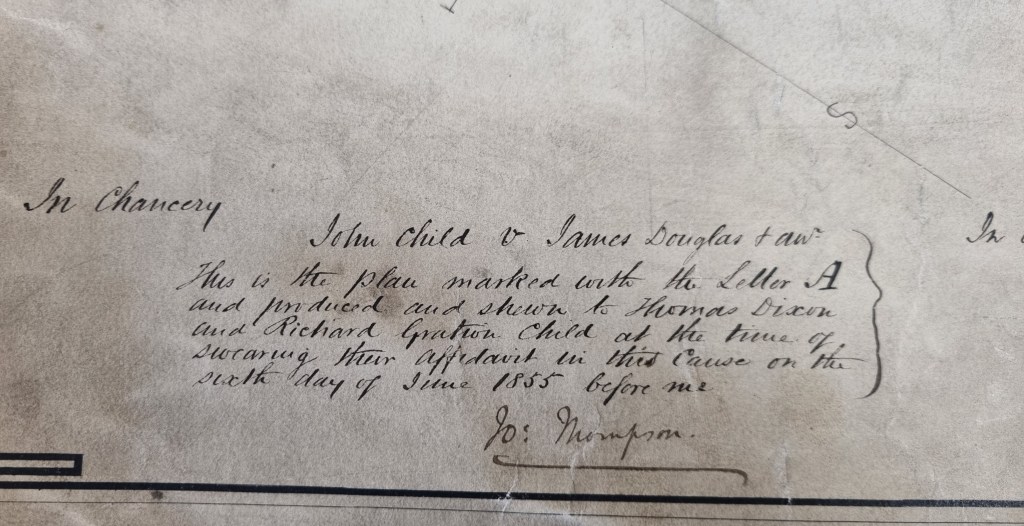 In Chancery
John Child v James Douglas & anr
This is the plan marked with the Letter A
and produced and shewn to Thomas Dixon
and Richard Gration Child at the time of
swearing their affidavit in this Cause on the
sixth day of June 1855 before me
Jos: Thompson.
S
In